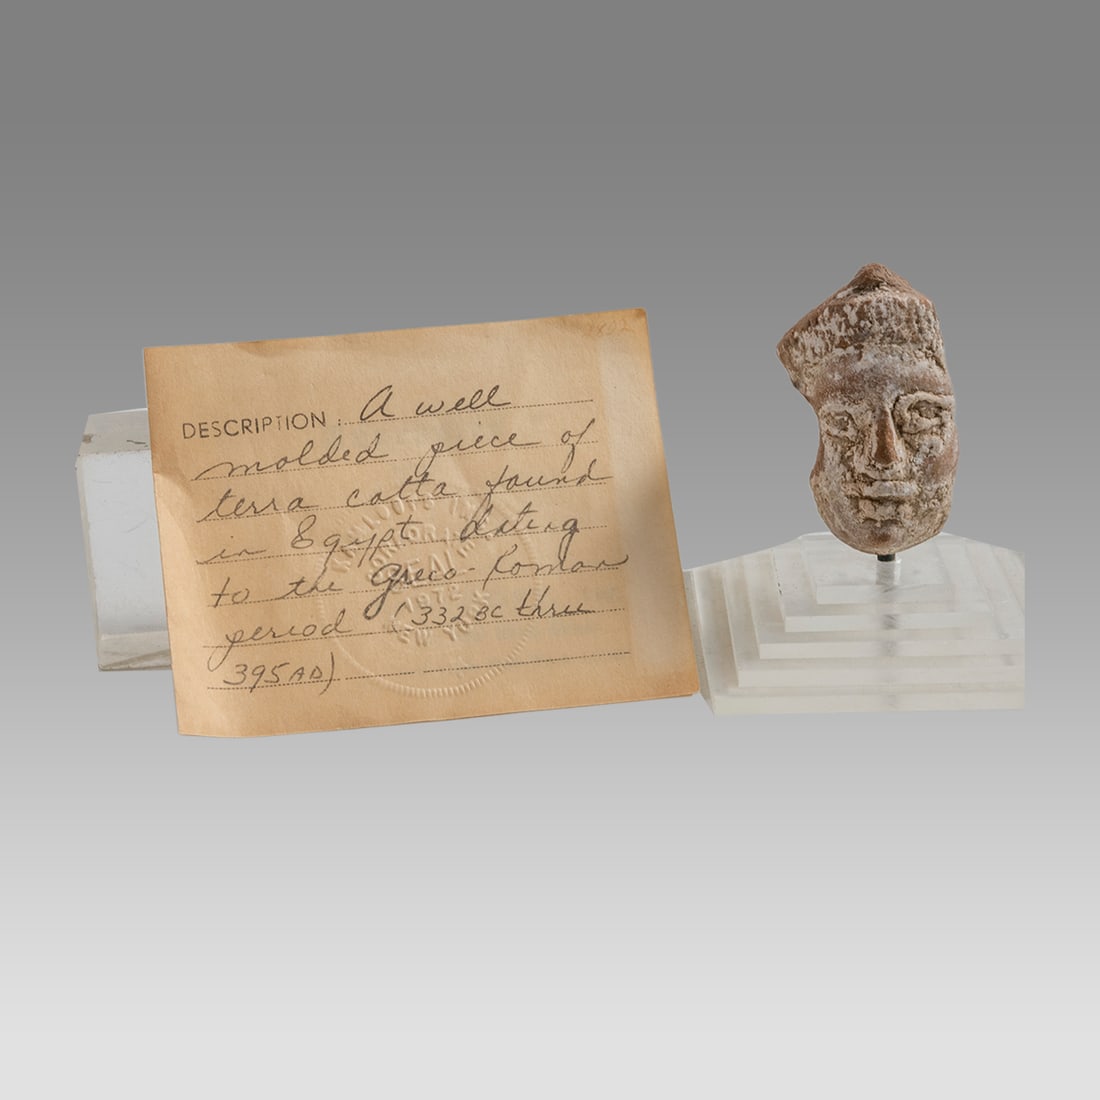 DESCRIPTION: A well
molded piece of
terra cotta found
in Egypt dating
to the Greco-Roman
period (332 BC thru
395 AD)
SEAL
1972
NEW YORK